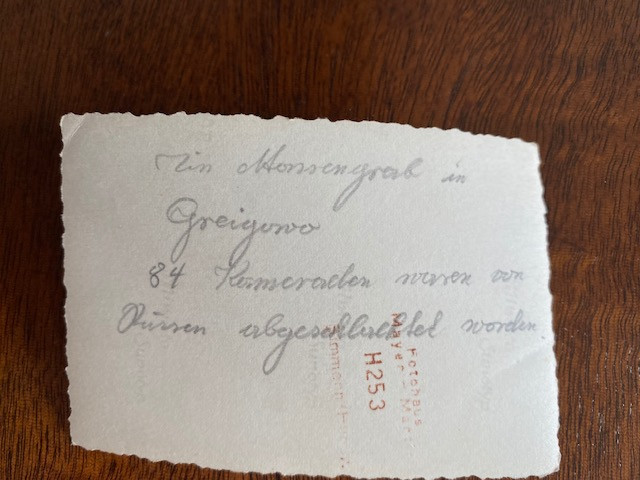 Ein Massengrab in
Greigowo
84 Kameraden waren von
Russen abgeschlachtet worden
Fotohaus
Mayer
H253